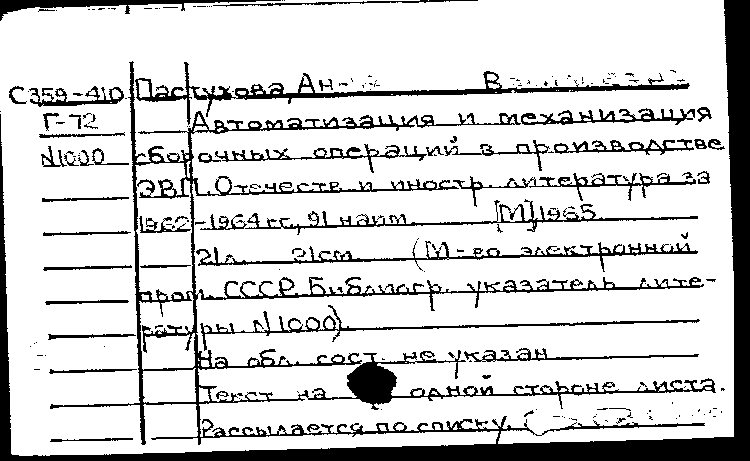 С359-410 Пастухова,
Г-72 Автоматизация и механизация
N1000 сборочных операций в производстве
ЭВП. Отечеств и иностр. литература за
1962-1964 гг., 91 наим. [М] 1965
21л. 21см (М-во электронной
пром. СССР. Библиогр. указатель лите-
ратуры. N1000).
На обл. сост. не указан
Текст на одной стороне листа.
Рассылается по списку.